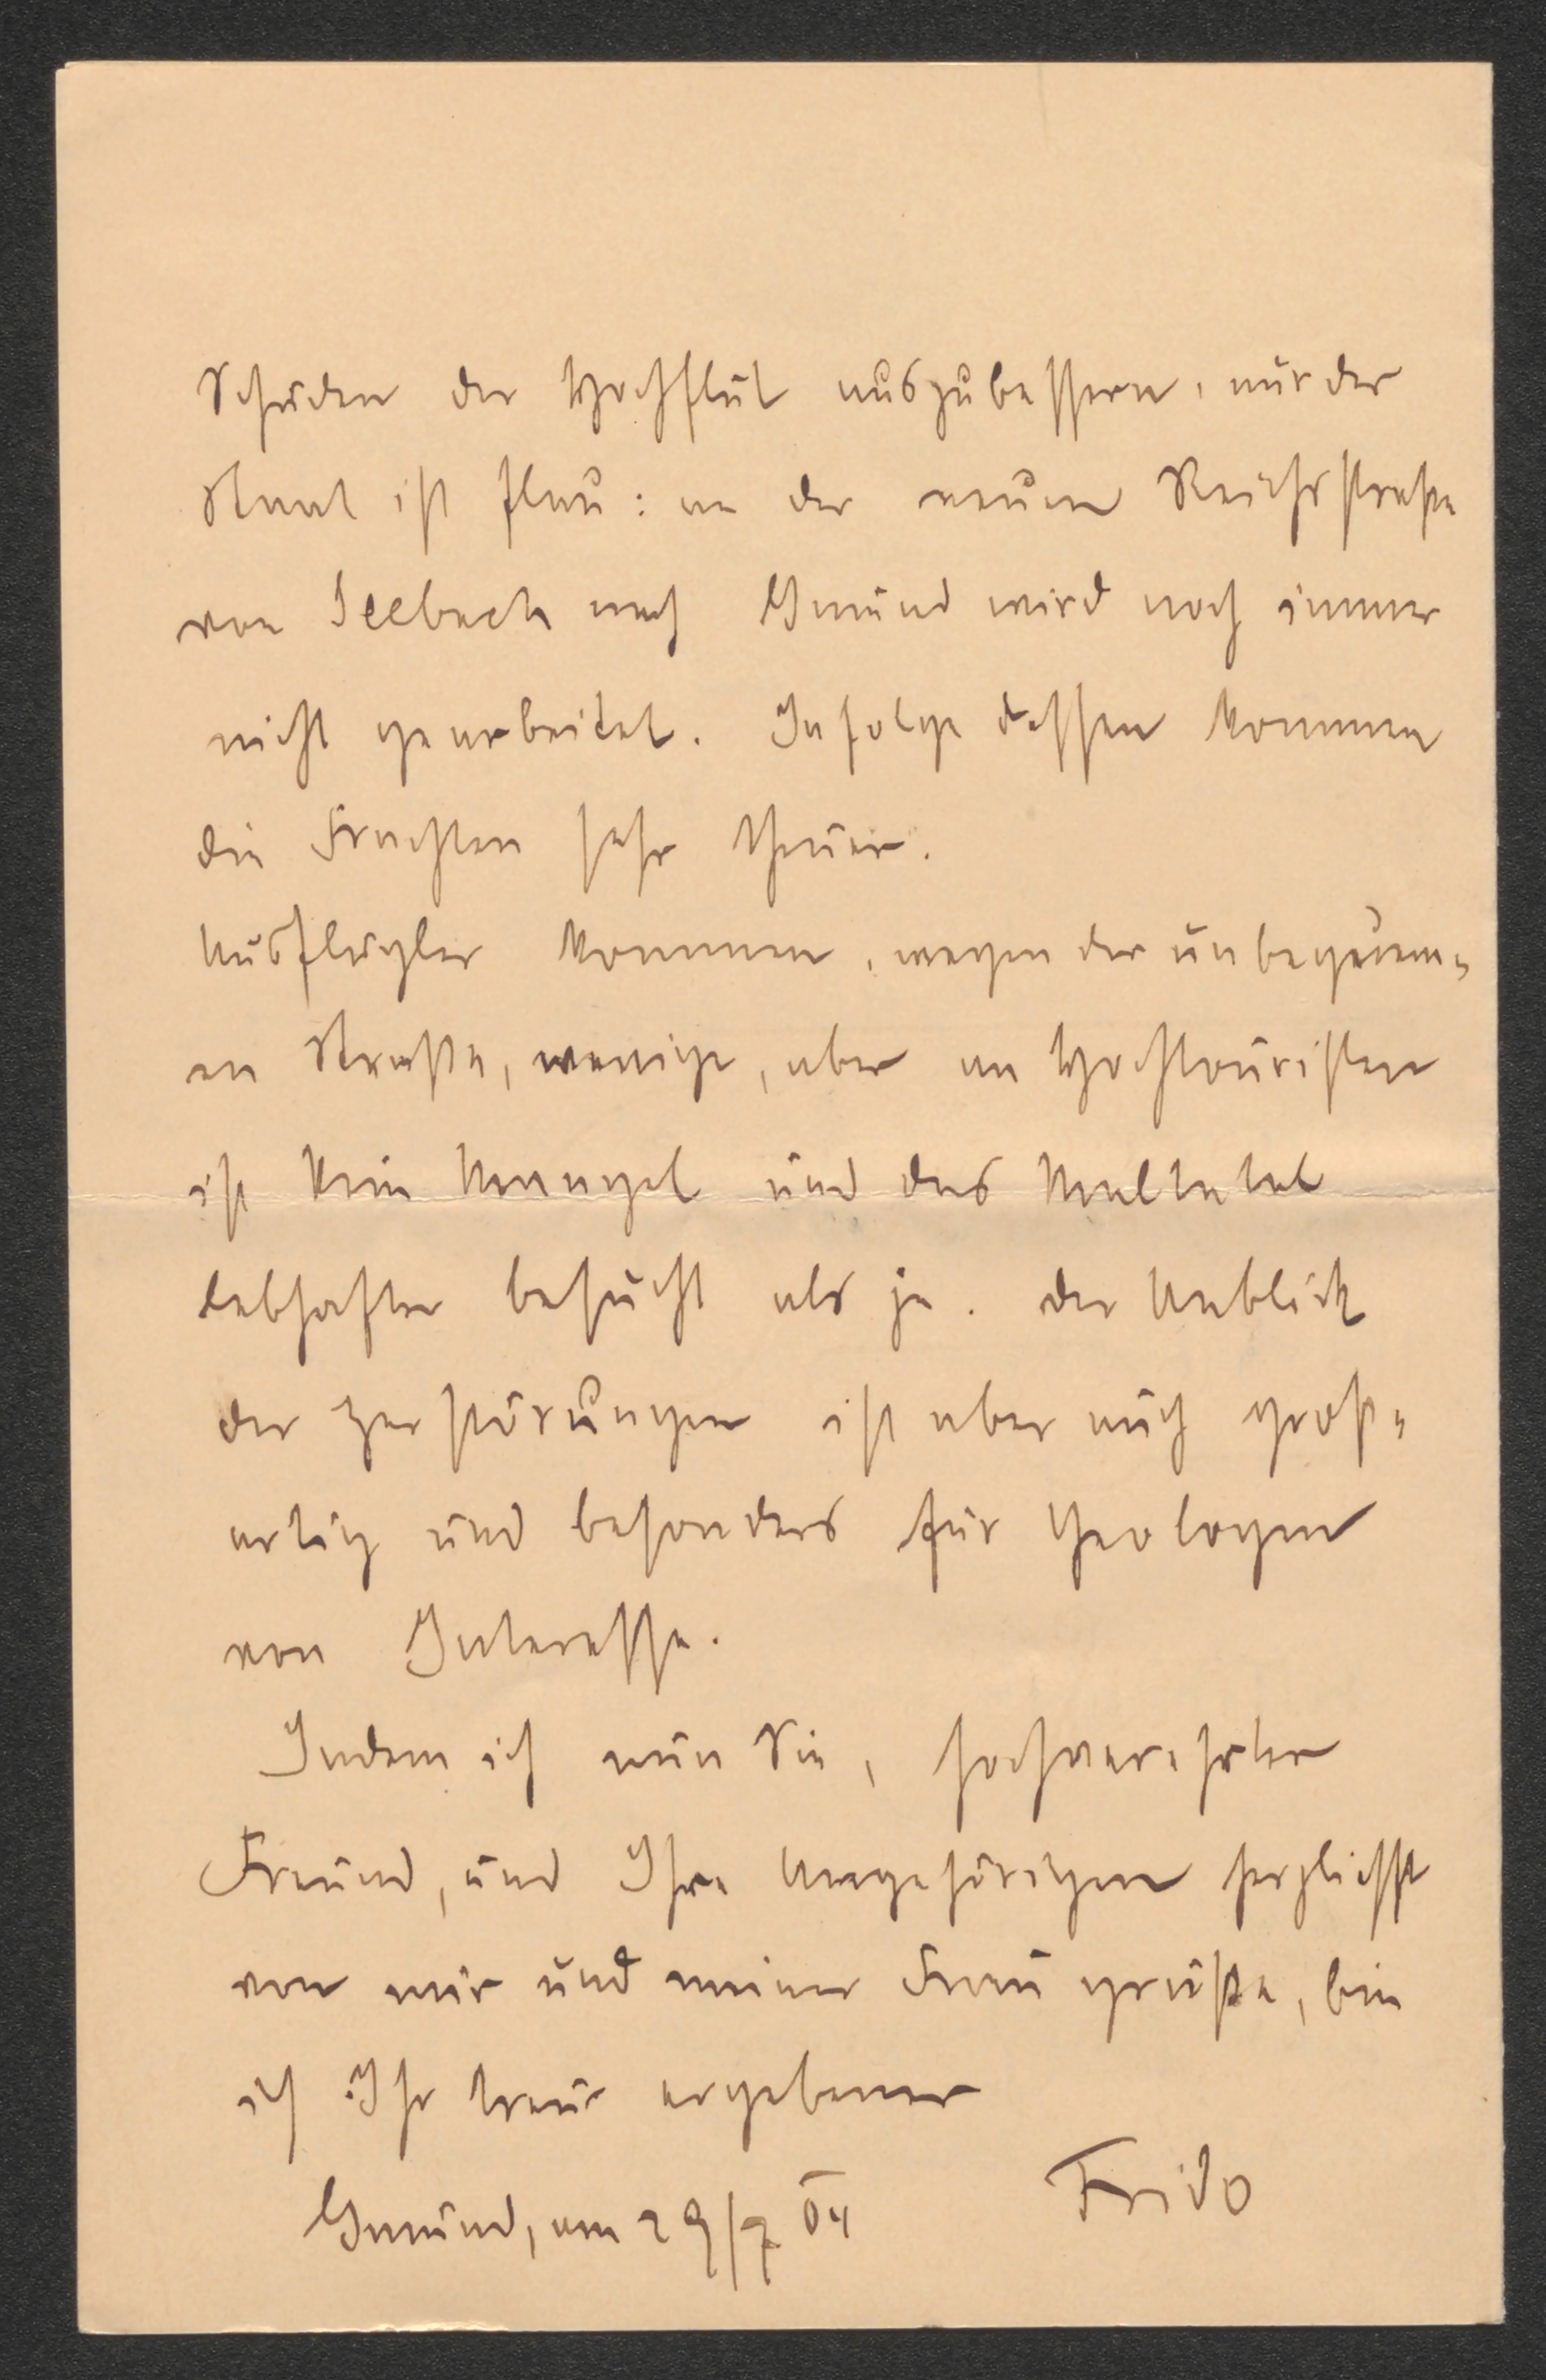 Schäden der Hochflut auszubessern, nur der
Staat ist flau: an der neuen Reichsstraße
von Seebach nach Gmünd wird noch immer
nicht gearbeitet. Infolge dessen kommen
die Frachten sehr theuer.
Ausflügler kommen, wegen der unbequem-
en Straße, wenige, aber an Hochtouristen
ist kein Mangel und das Maltatal
lebhafter besucht als je. Der Anblick
der Zerstörungen ist aber auch groß-
artig und besonders für Geologen
von Interesse.
Indem ich nun Sie, hochverehrter
Freund, und Ihre Angehörigen herzlichst
von mir und meiner Frau grüße, bin
ich Ihr treu ergebener
Frido
Gmünd, am 29/7 04